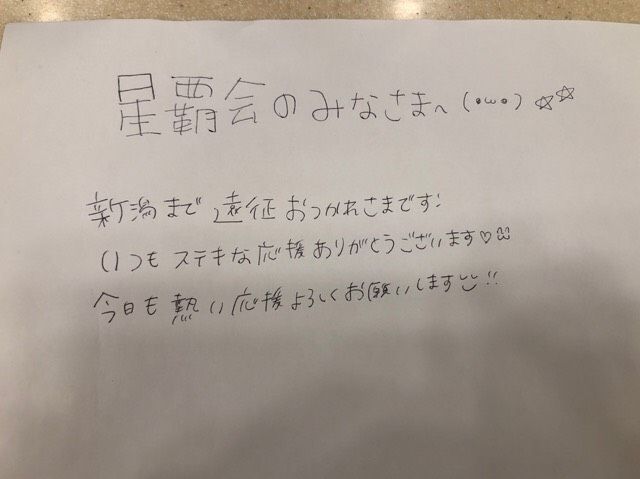 星覇会のみなさまへ(•ω•)☆☆
新潟まで遠征おつかれさまです:
いつもステキな応援ありがとうございます♡
今日も熱い応援よろしくお願いします!!